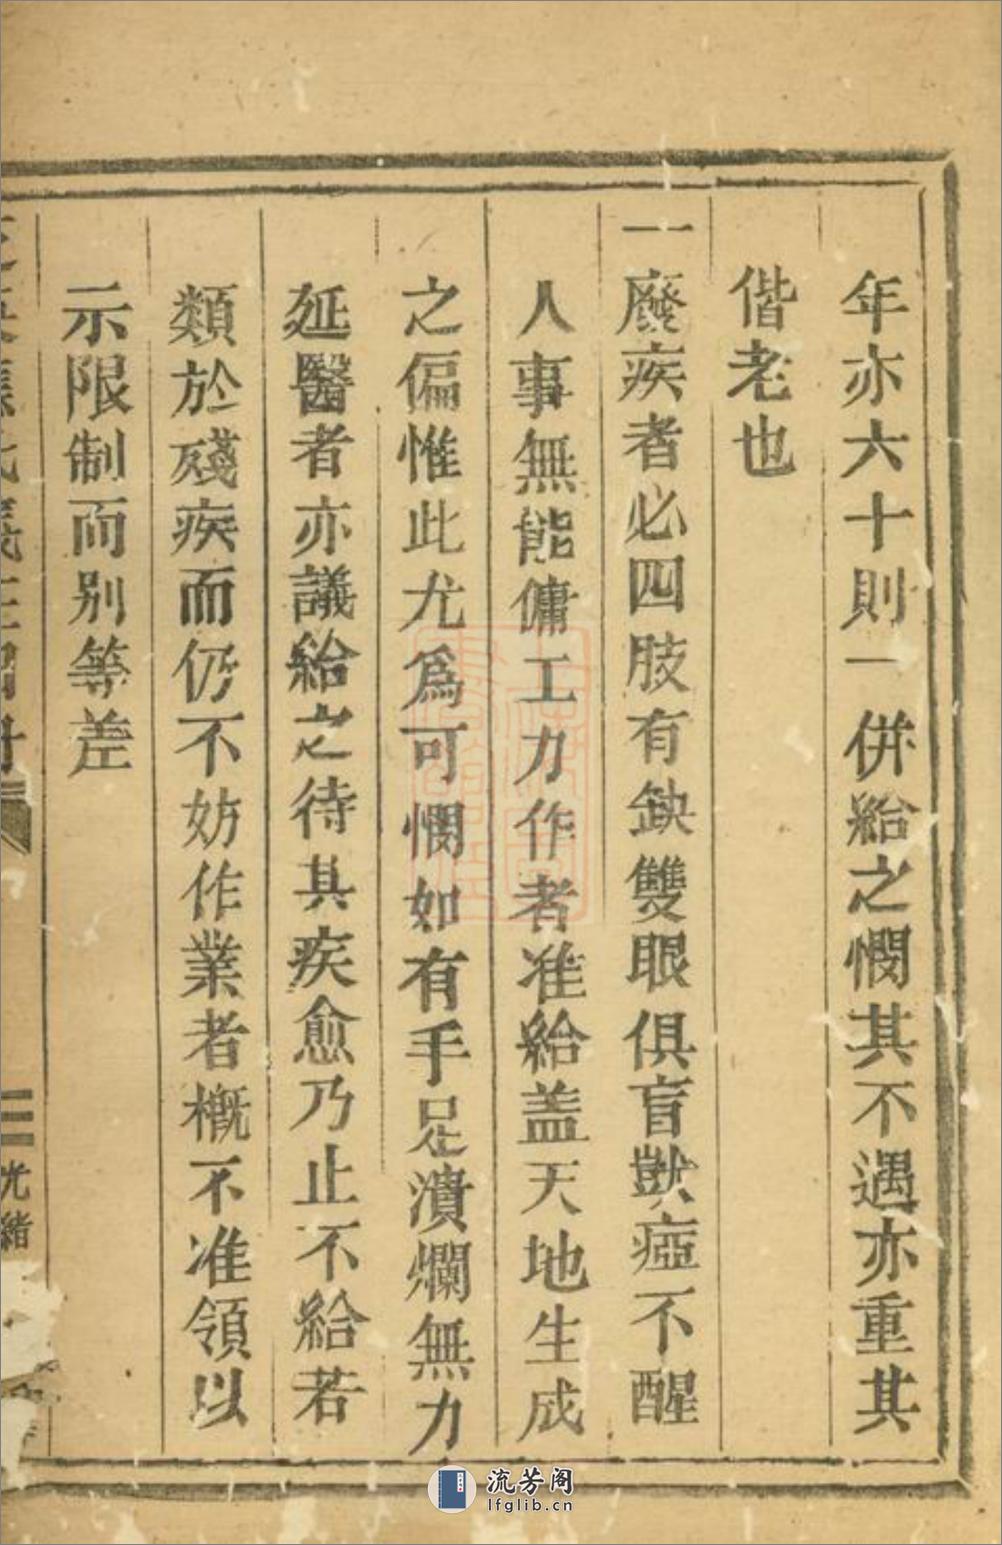 年亦六十則一併給之憫其不遇亦重其
偕老也
一廢疾者必四肢有缺雙眼俱盲獃瘂不醒
人事無能傭工力作者准給蓋天地生成
之偏惟此尤為可憫如有手足潰爛無力
延醫者亦議給之待其疾愈乃止不給若
類於殘疾而仍不妨作業者槪不准領以
示限制而別等差
光緒
流芳阁
lfglib.cn